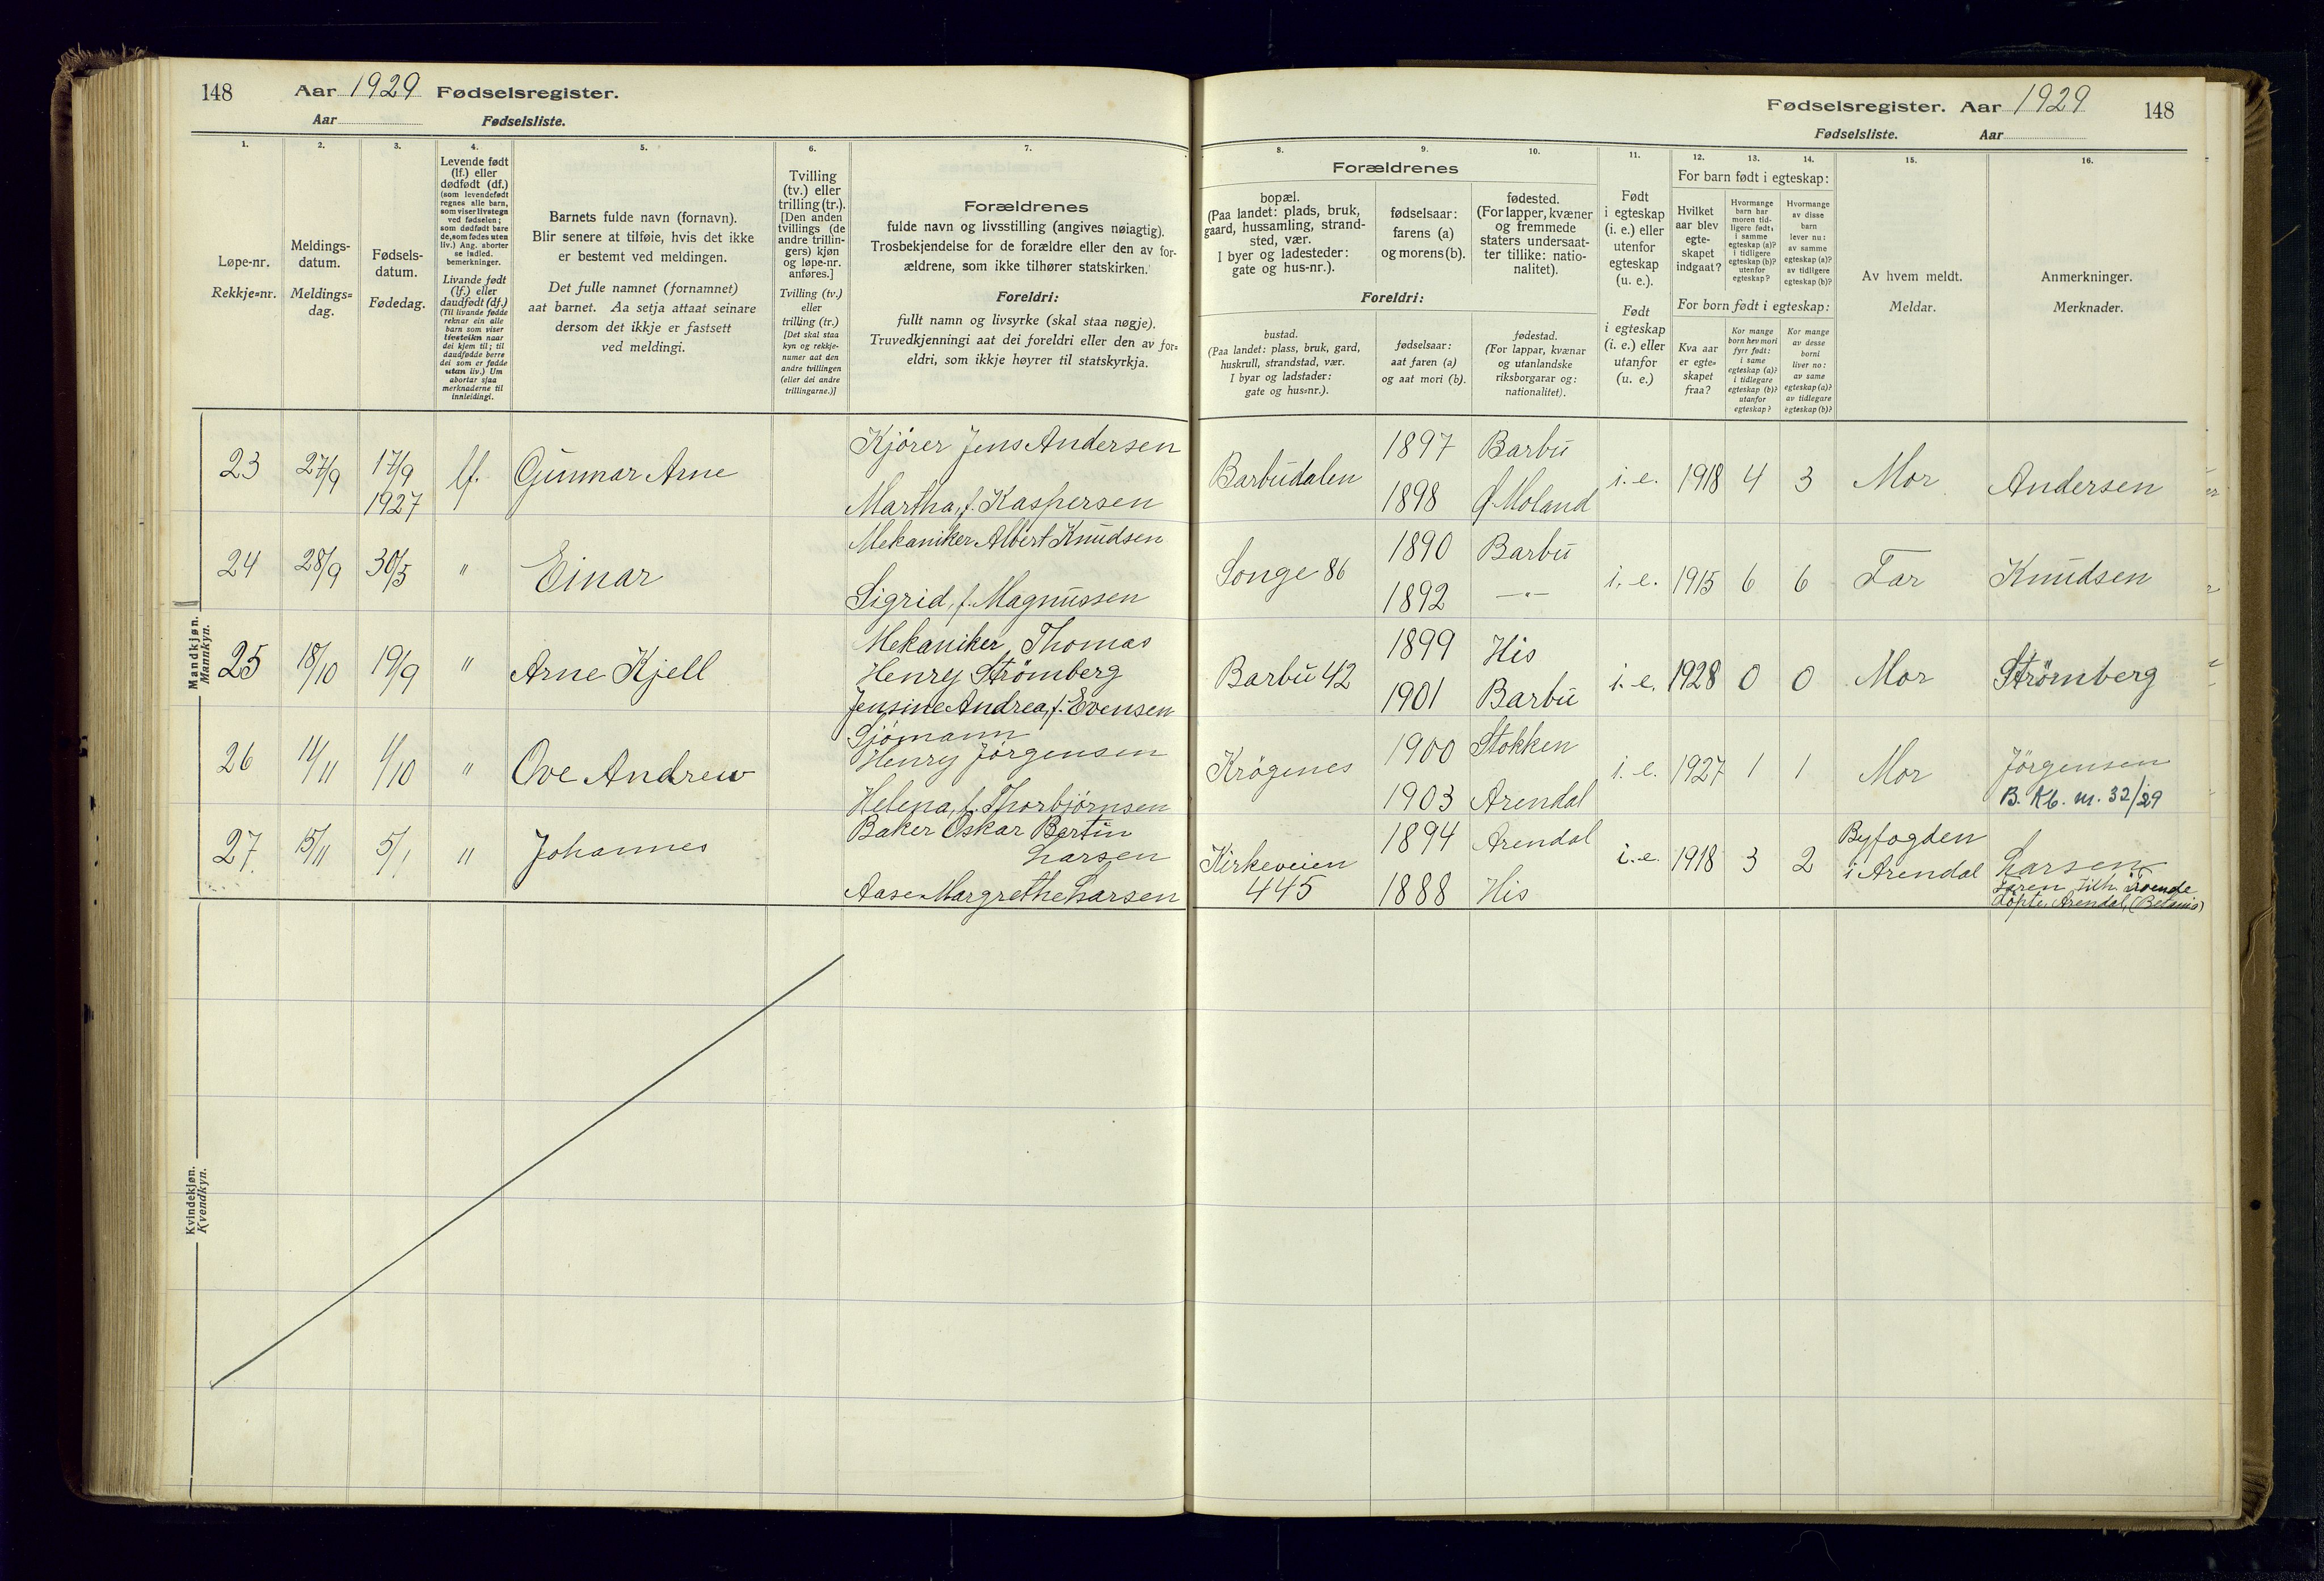 148 Aar 1929 Fødselsregister.
Aar Fødselsliste.
Fødselsregister. Aar 1929 148
Fødselsliste. Aar
1. 2. 3. 4. 5. 6. 7.
Løpe-nr.
Rekkje=nr.
Meldings-
datum.
Meldings=
dag.
Fødsels-
datum.
Fødedag.
Levende født
(lf.) eller
dødfødt (df.)
(som levendefødt
regnes alle barn,
som viser livstegn
ved fødselen;
som dødfødt bare
de, som fødes uten
liv.) Ang. aborter
se indled.
bemerkninger.
Livande født
(lf.) eller
daudfødt (df.)
(Til livande fødde
reknar ein alle
barn som viser
livsteikn naar
dei kjem til; til
daudfødde berre
dei som er fødde
utan liv.) Um
abortar sjaa
merknaderne til
innleidingi.
Barnets fulde navn (fornavn).
Blir senere at tilføie, hvis det ikke
er bestemt ved meldingen.
Det fulle namnet (fornamnet)
aat barnet. Aa setja attaat seinare
dersom det ikkje er fastsett
ved meldingi.
Tvilling
(tv.) eller
trilling (tr.).
[Den anden
tvillings (de
andre trillin-
gers) kjøn
og løpe-nr.
anføres.]
Tvilling (tv.)
eller
trilling (tr.)
[Det skal staa
kyn og rekkje-
numer aat den
andre tvillingen
(eller dei andre
trillingarne.)]
Forældrenes
fulde navn og livsstilling (angives nøiagtig).
Trosbekjendelse for de forældre eller den av for-
ældrene, som ikke tilhører statskirken.
Foreldri:
fullt namn og livsyrke (skal staa nøgje).
Truvedkjenningi aat dei foreldri eller den av for=
eldri, som ikkje høyrer til statskyrkja.
8. 9. 10. 11. 12. 13. 14. 15. 16.
Forældrenes
bopæl.
(Paa landet: plads, bruk,
gaard, hussamling, strand-
sted, vær.
I byer og ladesteder:
gate og hus-nr.).
fødselsaar:
farens (a)
og morens (b).
fødested.
(For lapper, kvæner
og fremmede
staters undersaat-
ter tillike: natio-
nalitet).
Foreldri:
bustad.
(Paa landet: plass, bruk, gard,
huskrull, strandstad, vær.
I byar og ladstader:
gate og hus=nr.).
fødselsaar:
aat faren (a)
og aat mori (b).
fødestad.
(For lappar, kvænar
og utanlandske
riksborgarar og:
nationalitet).
Født
i egteskap
(i. e.) eller
utenfor
egteskap
(u. e.).
Født
i egteskap
(i. e.) eller
utanfor
(u. e.)
For barn født i egteskap:
Hvilket
aar blev
egte-
skapet
indgaat?
Hvormange
barn har
moren tid-
ligere født:
i samme
egteskap (a)?
i tidligere
egteskap (b)?
utenfor
egteskap?
Hvormange
av disse
barn
lever nu:
av samme
egteskap (a)?
av tidligere
egteskap (b)?
For born født i egteskap:
Kva aar
er egte=
skapet
fraa?
Kor mange
born hev mori
fyrr født:
i same
egteskap (a)?
i tidlegare
egteskap (b)?
utanfor
egteskap?
Kor mange
av desse
borni
liver no:
av same
egteskap (a)?
av tidlegare
egteskap (b)?
Av hvem meldt.
Meldar.
Anmerkninger.
Merknader.
Mandkjøn.
Mannkyn.
23 27/9 17/9 1927 lf. Gunnar Arne Kjörer Jens Andersen
Martha, f. Kaspersen
Barbudalen 1897 Barbu i. e. 1918 4 3 Mor Andersen
1898 Ø. Moland
24 28/9 30/5 " Einar Mekaniker Albert Knudsen
Sigrid, f. Magnussen
Songe 86 1890 Barbu i. e. 1915 6 6 Far Knudsen
1892 —"—
25 18/10 19/9 " Arne Kjell Mekaniker Thomas
Henry Strömberg
Jensine Andrea, f. Evensen
Barbu 42 1899 His i. e. 1928 0 0 Mor Strömberg
1901 Barbu
26 14/11 1/10 " Ove Andrew Sjömann
Henry Jörgensen
Helena, f. Thorbjörnsen
Krögenes 1900 Stokken i. e. 1927 1 1 Mor Jörgensen
1903 Arendal
B. Kb. nr. 32/29
27. 15/11 5/1 " Johannes Baker Oskar Bertin
Larsen
Aase Margrethe Larsen
Kirkeveien 445 1894 Arendal i. e. 1918 3 2 Byfogden i Arendal Larsen
1888 His
Faren tilh.
döpte, Arendal, (Betania)
Kvindekjøn.
Kvendkyn.